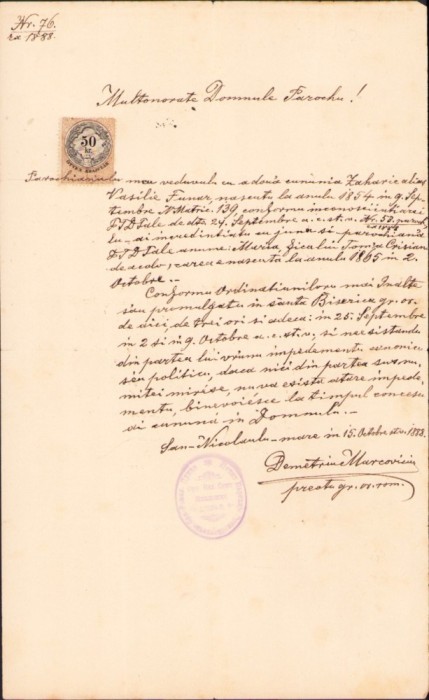 Nr. 76.
ex 1888.
Multonorate Domnule Parochu!
50
kr.
Parochianulu meu veduvulu cu a dóua cununia Zaharie alias
Vasilie Funar, nascutu la anulu 1854 in 9. Sep-
tembre Nr Matric. 139, conformu inconosciintiarei
DTale de dto 24. Septembre a. c. st. v. Nr. 52. paroch.
lu-ai incredintiatu cu jun'a si parochiana
DTale anume: Maria, fica lui Toma Crisian
de acolo, carea e nascuta la anulu 1865 in 2.
Octobre. -
Conformu Ordinatiuniloru mai Inalte
s'au promulgatu in santa Biserica gr. or.
de aici, de trei ori si adeca: in 25. Septembre
in 2 si in 9. Octobre a. c. st. v. si neesistandu
din partea lui vr'unu impedementu canonicu
séu politicu, daca nici din partea susnu-
mitei mirése nu va esista atare impede-
mentu, binevoiésce la timpul concesu
ai cununá in Domnulu. -
San-Nicolaulu-mare in 15. Octobre st. v. 1888.
Demetriu Marcoviciu
preotu gr. or. rom.